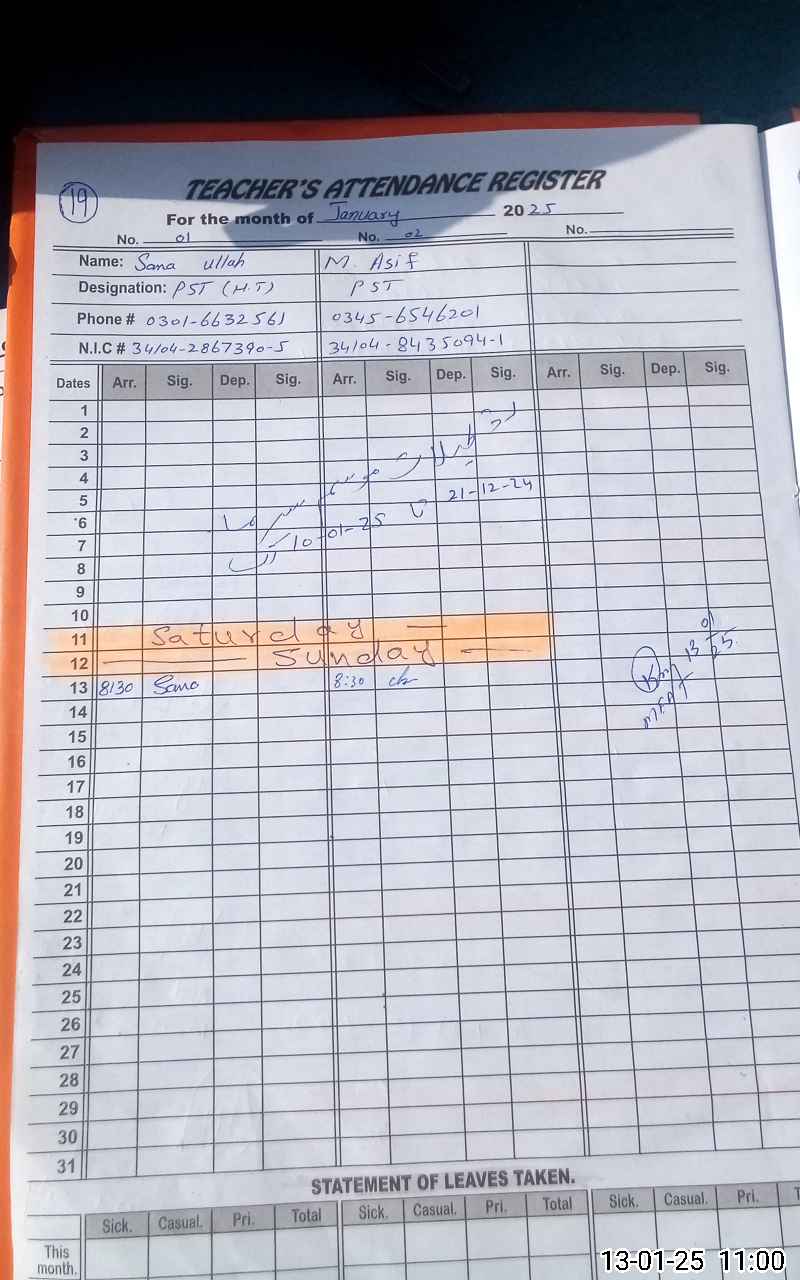 19
TEACHER'S ATTENDANCE REGISTER
For the month of January 2025
No. 01 No. 02 No.
Name: Sana ullah M. Asif
Designation: PST (H.T) PST
Phone # 0301-6632561 0345-6546201
N.I.C # 34104-2867390-5 34104-8435094-1
Dates Arr. Sig. Dep. Sig. Arr. Sig. Dep. Sig. Arr. Sig. Dep. Sig.
1
2
3
4
تعطیلات موسم سرما
5
21-12-24 تا 10-01-25
6
7
8
9
10
11 Saturday
12 Sunday
13 8:30 Sana 8:30
13 01 25
MEA
14
15
16
17
18
19
20
21
22
23
24
25
26
27
28
29
30
31
STATEMENT OF LEAVES TAKEN.
Sick. Casual. Pri. Total Sick. Casual. Pri. Total Sick. Casual. Pri.
This month.
13-01-25 11:00